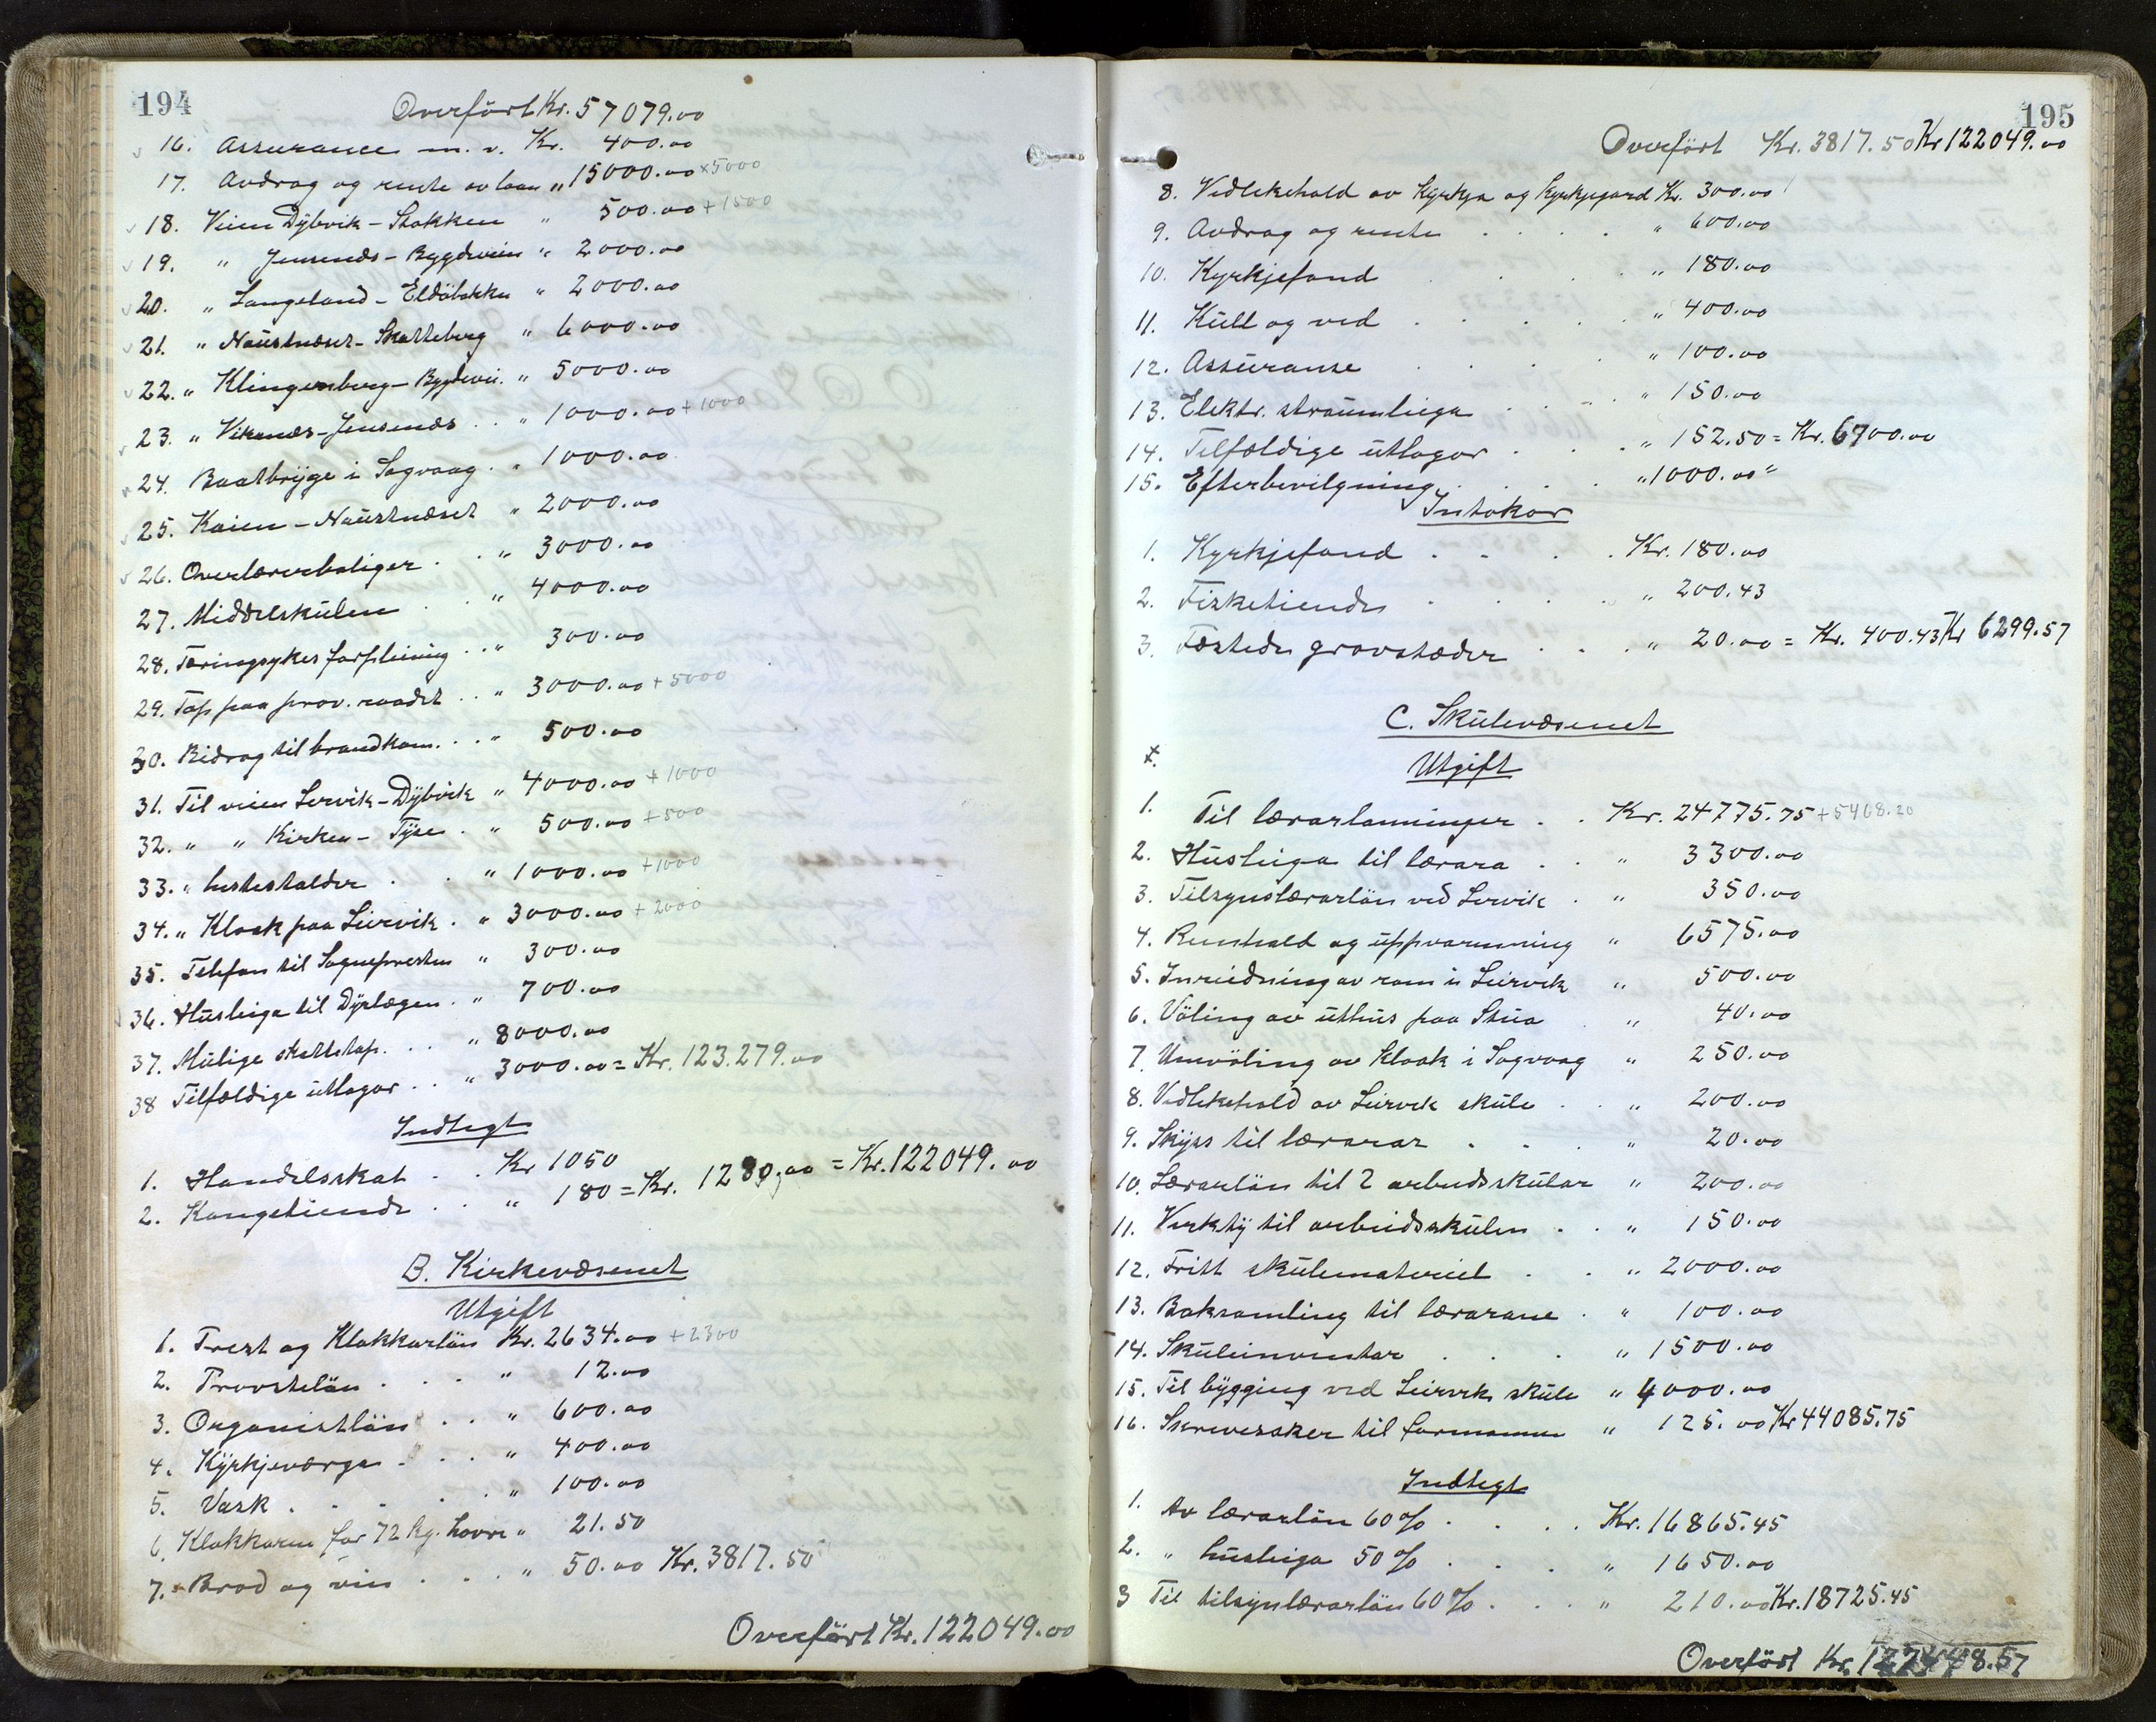 194
Overført Kr. 57079.00
16. Assurance m. v. Kr. 400.00
17. Avdrag og rente av laan " 15000.00 x5000
18. Veien Dÿbvik - Stokken " 500.00 + 1500
19. " Jensenæs - Bygdeveien " 2000.00
20. " Langeland - Eldöbakka " 2000.00
21. " Naustnæset - Skatteberg " 6000.00
22. " Klingenberg - Bygdevei. " 5000.00
23. " Vikanæs - Jensenæs . . " 1000.00 + 1000
24. Baatbrÿge i Sagvaag . " 1000.00
25. Kaien - Naustnæset " 2000.00
26. Overlærerboliger . . " 3000.00
27. Middelskulen . . " 4000.00
28. Tæringsykes forpleining . . " 300.00
29. Tap paa prov. raadet . . " 3000.00 + 5000
30. Bidrag til brandkom. . . " 500.00
31. Til veien Lervik - Dÿbvik " 4000.00 + 1000
32. " " Kirken - Tÿse . " 500.00 + 500
33. " hestestalder . . " 1000.00 + 1000
34. " Kloak paa Leirvik . " 3000.00 + 2000
35. Telefon til Sognepresten " 300.00
36. Husleiga til Dÿrlægen . " 700.00
37. Mulige skattetap. . . " 8000.00
38 Tilfældige utlagor . . " 3000.00 = Kr. 123.279.00
Indtegt
1. Handelsskat . . Kr 1050
2. Kongetiende . . " 180 = Kr. 1230.00 = Kr. 122049.00
B. Kirkevæsenet
Utgift
1. Prest og Klokkarlön Kr. 2634.00 + 2300
2. Provstelön . . . " 12.00
3. Organistlön . . " 600.00
4. Kÿrkjeværge . . . " 400.00
5. Vask . . . . " 100.00
6. Klokkaren for 72 kg. havre " 21.50
7. Brod og vin . . . " 50.00 Kr. 3817.50
Overført Kr. 122049.00
195
Overført Kr. 3817.50 Kr 122049.00
8. Vedlikehald av Kÿrkja og Kyrkjegard Kr. 300.00
9. Avdrag og rente . . . . " 600.00
10. Kyrkjefond . . " 180.00
11. Kull og ved . . . . " 400.00
12. Assuranse . . . " 100.00
13. Elektr. straumleiga . . . " 150.00
14. Tilfældige utlagor . . . " 152.50 = Kr. 6700.00
15. Efterbevilgning . . . " 1000.00 "
Intøkor
1. Kyrkjefond . . . . Kr. 180.00
2. Fisketiende . . . . " 200.43
3. Fæstede gravstæder . . . " 20.00 = Kr. 400.43 Kr 6299.57
C. Skulevæsenet
Utgift
1. Til lærarlønninger . . Kr. 24775.75 + 5468.20
2. Husleiga til lærara . . " 3300.00
3. Tilsynslærarlön ved Lervik . " 350.00
4. Renhald og uppvarmning " 6575.00
5. Inreidning av rom i Leirvik " 500.00
6. Völing av uthus paa Stua . " 40.00
7. Umvöling av Kloak i Sagvaag " 250.00
8. Vedlikehald av Leirvik skule . . " 200.00
9. Skÿss til lærarar . . . " 20.00
10. Lærarlön til 2 arbeidsskular " 200.00
11. Verktÿ til arbeidsskulen . . " 150.00
12. Fritt skulemateriel . . " 2000.00
13. Boksamling til lærarane . " 100.00
14. Skuleinventar . . . " 1500.00
15. Til bÿgging ved Leirvik skule " 4000.00
16. Skrivesaker til formannen " 125.00 Kr 44085.75
Indtegt
1. Av lærarlön 60% . . . . Kr. 16865.45
2. " husleiga 50% . . . " 1650.00
3 Til tilsynlærarlön 60% . . . " 210.00 Kr. 18725.45
Overført Kr.